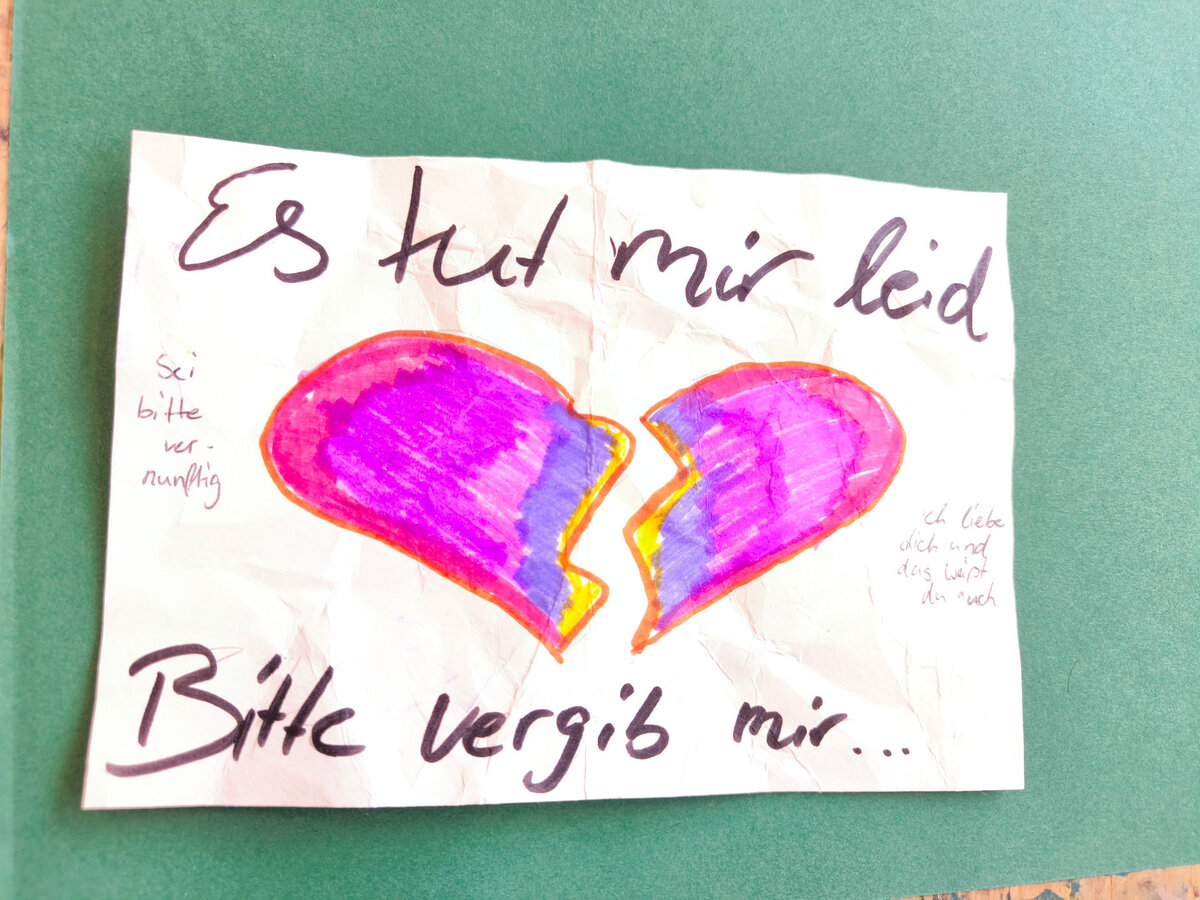 Es tut mir leid
Sei
bitte
ver-
nunftig
ich liebe
dich und
das weißt
du auch
Bitte vergib mir...